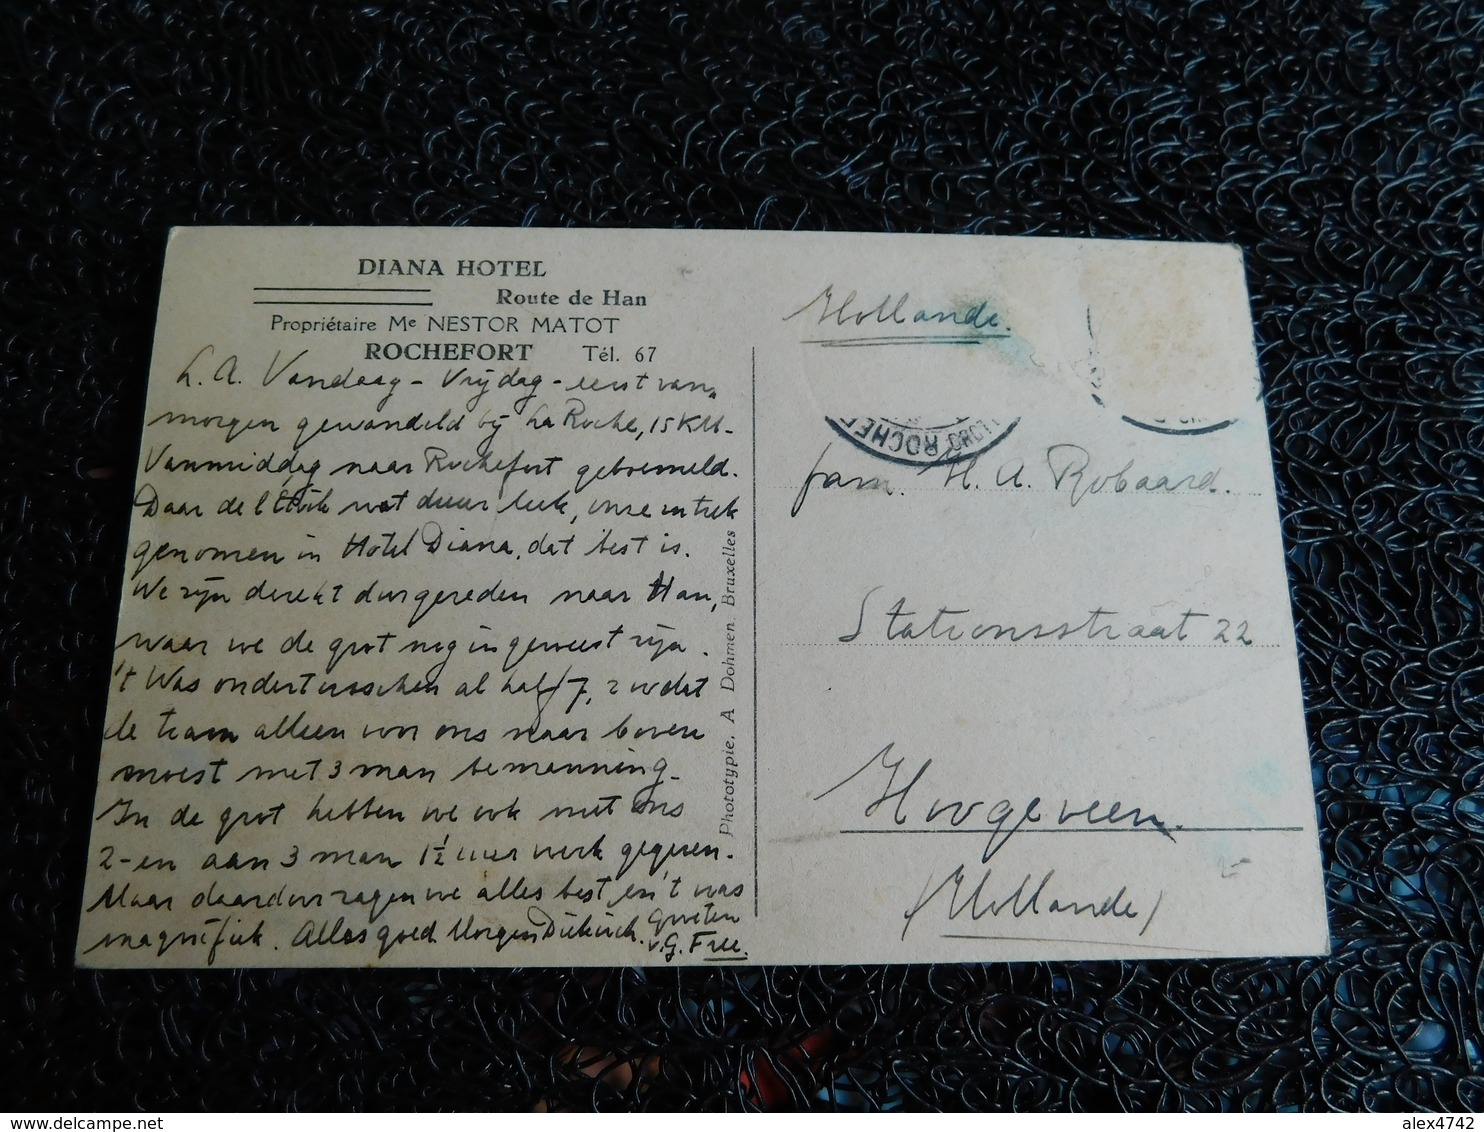 DIANA HOTEL
Route de Han
Propriétaire Me NESTOR MATOT
ROCHEFORT Tél. 67
L.A. Vandaag - Vrijdag - eerst van
morgen gewandeld bij La Roche, 15 KM.
Vanmiddag naar Rochefort geboemeld.
Daar de l'Etoile wat duur leek, onze intrek
genomen in Hotel Diana, dat best is.
We zijn direkt doorgereden naar Han,
waar we de grot nog in geweest zijn.
't Was ondertusschen al half 7, zoodat
de tram alleen voor ons naar boven
moest met 3 man bemanning.
In de grot hebben we ook met ons
2-en aan 3 man 1½ uur werk gegeven.
Maar daardoor zagen we alles best en 't was
magnifiek. Alles goed Morgen Diekirch. groeten
v. G. Free.
Phototypie. A Dohmen. Bruxelles
Hollande.
ROCHEF
fam. H. A. Robaard.
Stationsstraat 22
Hoogeveen.
(Hollande)
alex4742